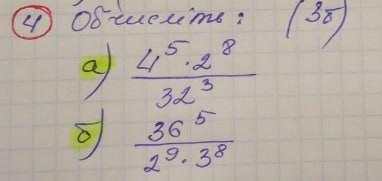 4 Обчисліть: (3б)
а) 4⁵·2⁸
32³
б) 36⁵
2⁹·3⁸